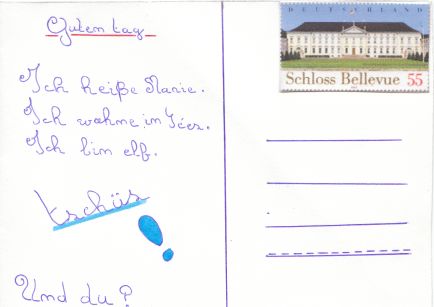 Guten tag
Ich heiße Marie.
Ich wohme im
Ich bim elf.
tschüs!
Und du?
DEUTSCHLAND
Schloss Bellevue 55